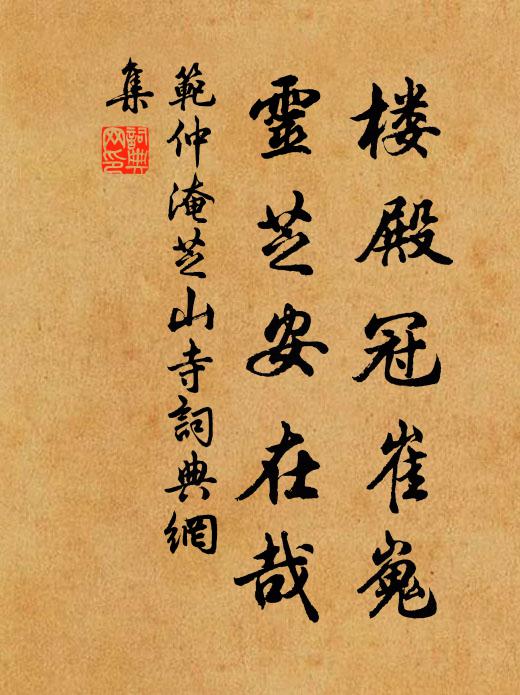 楼殿冠崔嵬
靈芝安在哉
範仲淹芝山寺詞典網
集
詞典網印